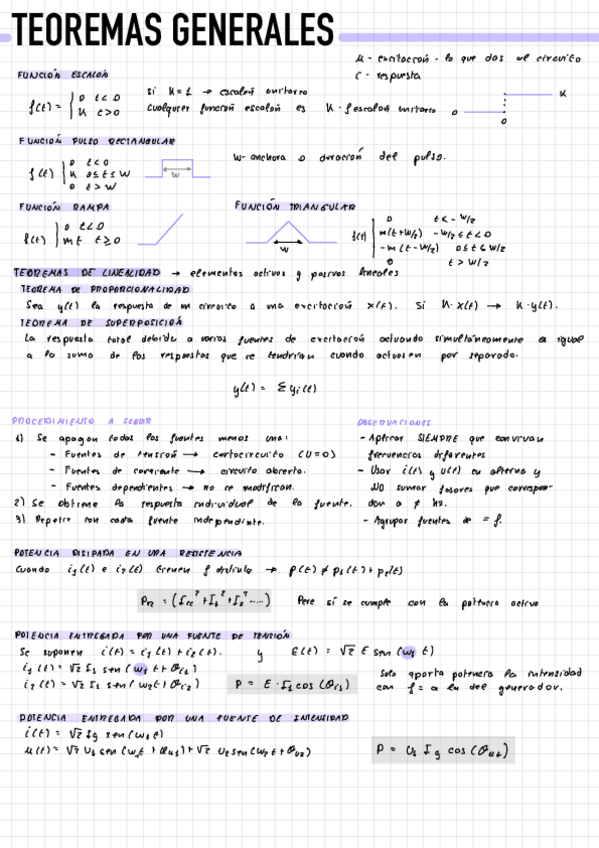 TEOREMAS GENERALES
u - excitación - lo que das al circuito
r - respuesta
FUNCIÓN ESCALÓN
f(t) = | 0 t<0
K t>0
Si K=1 → escalón unitario
Cualquier función escalón es K · f escalón unitario
K
0
0
FUNCIÓN PULSO RECTANGULAR
f(t) | 0 t<0
K 0≤t≤W
0 t>W
W
W- anchura o duración del pulso.
FUNCIÓN RAMPA
f(t) | 0 t<0
mt t≥0
FUNCIÓN TRIANGULAR
W
f(t) | 0 t<-W/2
m(t+W/2) -W/2≤t<0
-m(t-W/2) 0≤t≤W/2
0 t>W/2
TEOREMAS DE LINEALIDAD → elementos activos y pasivos lineales
TEOREMA DE PROPORCIONALIDAD
Sea y(t) la respuesta de un circuito a una excitación x(t). Si K·x(t) → K·y(t).
TEOREMA DE SUPERPOSICIÓN
La respuesta total debida a varias fuentes de excitación actuando simultáneamente es igual
a la suma de las respuestas que se tendrían cuando actúasen por separado.
y(t) = Σ yi(t)
PROCEDIMIENTO A SEGUIR
1) Se apagan todas las fuentes menos una:
- Fuentes de tensión → cortocircuito (U=0)
- Fuentes de corriente → circuito abierto.
- Fuentes dependientes → no se modifican.
2) Se obtiene la respuesta individual de la fuente.
3) Repetir con cada fuente independiente.
OBSERVACIONES
- Aplicar SIEMPRE que convivan
frecuencias diferentes
- Usar i(t) y u(t) en alterna y
NO sumar fasores que correspon-
dan a ≠ Hz.
- Agrupar fuentes de = f.
POTENCIA DISIPADA EN UNA RESISTENCIA
Cuando i1(t) e i2(t) tienen f distinta → p(t) ≠ p1(t) + p2(t)
Pero sí se cumple con la potencia activa
POTENCIA ENTREGADA POR UNA FUENTE DE TENSIÓN
Se suponen i(t) = i1(t) + i2(t). y E(t) = √2 E sen(w1 t)
i1(t) = √2 I1 sen(w1 t + θi1)
i2(t) = √2 I2 sen(w2t + θi2)
P = E · I1 cos(θi1)
Solo aporta potencia la intensidad
con f = a la del generador.
POTENCIA ENTREGADA POR UNA FUENTE DE INTENSIDAD
i(t) = √2 Ig sen(w1 t)
u(t) = √2 U1 sen(w1t + θu1) + √2 U2 sen(w2 t + θu2)
P = U1 Ig cos(θu1)